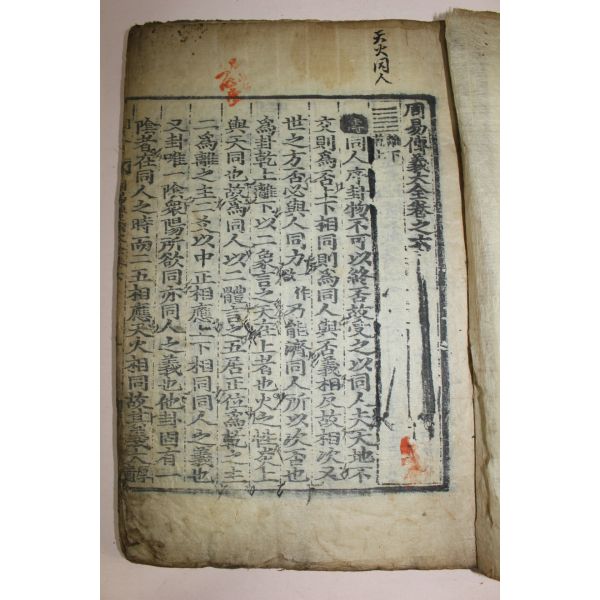 天火同人
周易傳義大全卷之六
離下
乾上
傳同人序卦物不可以終否故受之以同人夫天地不
交則為否上下相同則為同人與否義相反故相次又
世之方否必與人同力作乃能濟同人所以次否也
為卦乾上離下以二象言之天在上者也火之性炎上
與天同也故為同人以二體言之五居正位為乾之主
二為離之主二爻以中正相應上下相同同人之義也
又卦唯一陰衆陽所欲同亦同人之義也他卦固有一
陰者在同人之時而二五相應天火相同故其義大